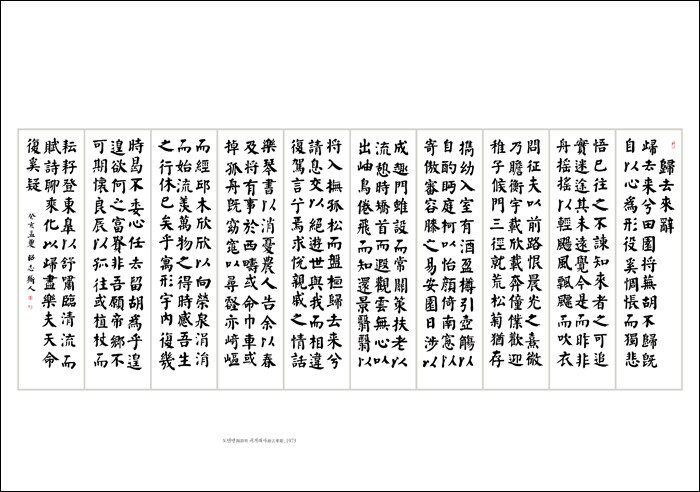 歸去來辭
歸去來兮田園將蕪胡不歸旣
自以心爲形役奚惆悵而獨悲
悟已往之不諫知來者之可追
實迷途其未遠覺今是而昨非
舟搖搖以輕颺風飄飄而吹衣
問征夫以前路恨晨光之熹微
乃瞻衡宇載欣載奔僮僕歡迎
稚子候門三徑就荒松菊猶存
携幼入室有酒盈樽引壺觴以
自酌眄庭柯以怡顔倚南窓以
寄傲審容膝之易安園日涉以
成趣門雖設而常關策扶老以
流憩時矯首而遐觀雲無心以
出岫鳥倦飛而知還景翳翳以
將入撫孤松而盤桓歸去來兮
請息交以絶遊世與我而相違
復駕言兮焉求悅親戚之情話
樂琴書以消憂農人告余以春
及將有事於西疇或命巾車或
棹孤舟旣窈窕以尋壑亦崎嶇
而經邱木欣欣以向榮泉涓涓
而始流羨萬物之得時感吾生
之行休已矣乎寓形宇內復幾
時曷不委心任去留胡爲乎遑
遑欲何之富貴非吾願帝鄕不
可期懷良辰以孤往或植杖而
耘耔登東皐以舒嘯臨清流而
賦詩聊乘化以歸盡樂夫天命
復奚疑
癸亥孟夏
도연명陶淵明 귀거래사歸去來辭_1973